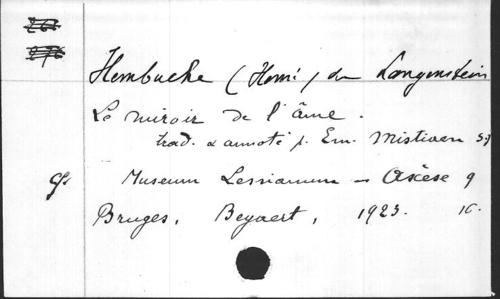 Hembuche (Henri) de Langenstein
Le miroir de l'âme.
trad. & annoté p. Em. Mistiaen S.J
Museum Lessianum – Ascèse 9
Bruges, Beyaert, 1923. 16.